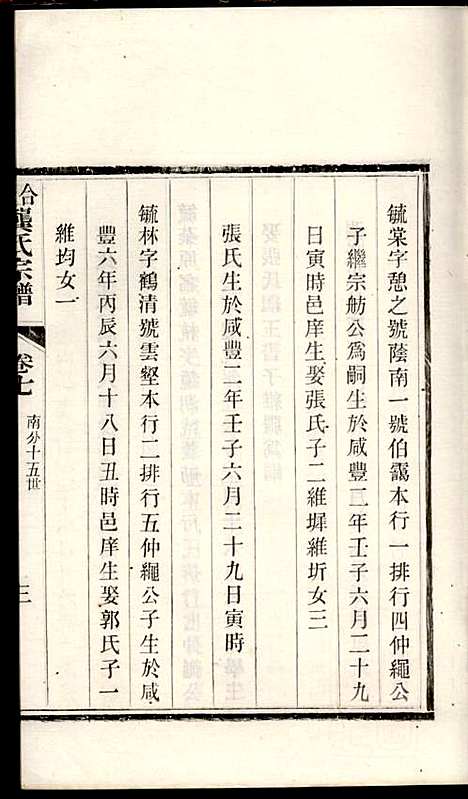 毓棠字憩之號蔭南一號伯靄本行一排行四仲繩公
子繼宗舫公爲嗣生於咸豐二年壬子六月二十九
日寅時邑庠生娶張氏子二維墀維圻女三
張氏生於咸豐二年壬子六月二十九日寅時
毓林字鶴清號雲壑本行二排行五仲繩公子生於咸
豐六年丙辰六月十八日丑時邑庠生娶郭氏子一
維均女一
龔氏宗譜
卷七
南分十五世
三